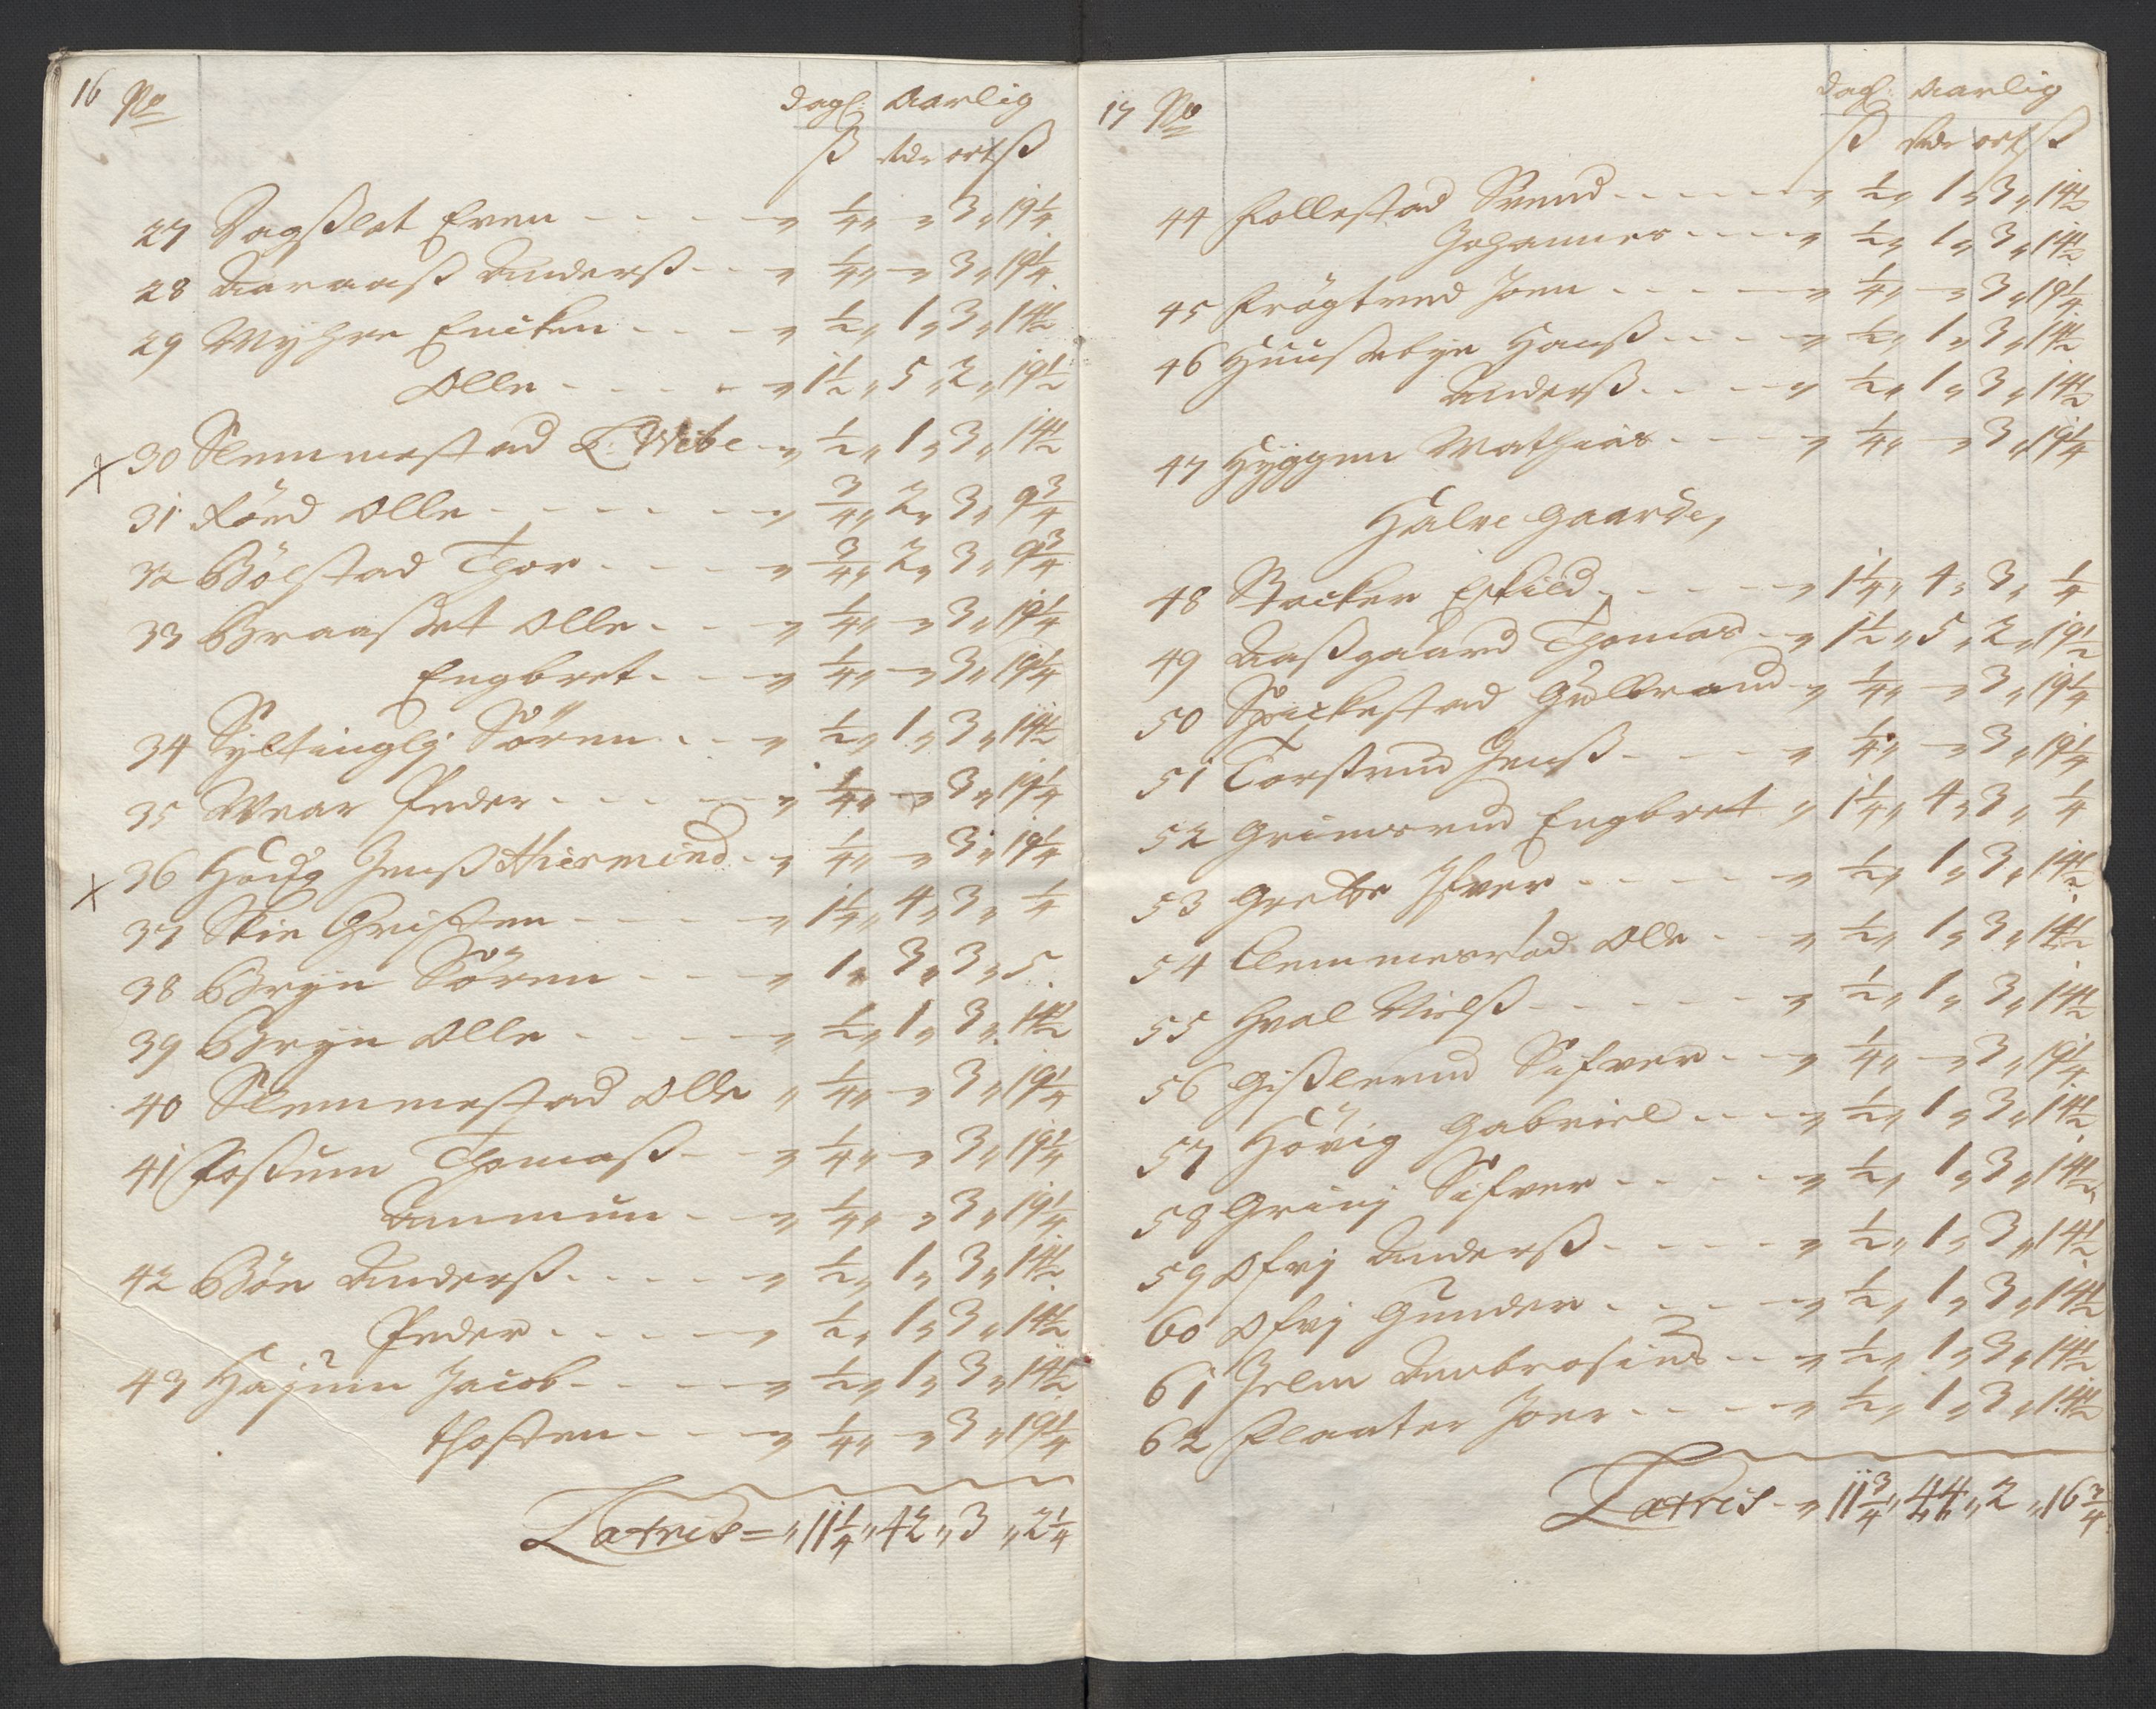 16 No dagl: Aarlig
ß Rdr ort ß
27 Dagsslet Even - - - - „ 1/4 „ - „ 3 „ 19 1/4
28 Aaraasß Anderß - - „ 1/4 „ - „ 3 „ 19 1/4
29 Myhre Encken - - - - „ 1/2 „ 1 „ 3 „ 14 1/2
Olle - - - - - „ 1 1/2 „ 5 „ 2 „ 19 1/2
x 30 Slemmestad L: Wibe - „ 1/2 „ 1 „ 3 „ 14 1/2
31 Röed Olle - - - - - - „ 3/4 „ 2 „ 3 „ 9 3/4
32 Bölstad Thor - - - - „ 3/4 „ 2 „ 3 „ 9 3/4
33 Braasset Olle - - - „ 1/4 „ - „ 3 „ 19 1/4
Engbret - - - „ 1/4 „ - „ 3 „ 19 1/4
34 Syltinglj Sören - - - „ 1/2 „ 1 „ 3 „ 14 1/2
35 Wear Peder - - - - - „ 1/4 „ - „ 3 „ 19 1/4
x 36 Houg Jenß Hiermind - „ 1/4 „ - „ 3 „ 19 1/4
37 Skie Christen - - - - „ 1 1/4 „ 4 „ 3 „ 1/4
38 Bryn Sören - - - „ 1 „ 3 „ 3 „ 5
39 Bryn Olle - - - - - „ 1/2 „ 1 „ 3 „ 14 1/2
40 Slemmestad Olle „ 1/4 „ - „ 3 „ 19 1/4
41 Fossum Thomaß - - „ 1/4 „ - „ 3 „ 19 1/4
Ammun - - - „ 1/4 „ - „ 3 „ 19 1/4
42 Böe Anderß - - - - - „ 1/2 „ 1 „ 3 „ 14 1/2
Peder - - - - - „ 1/2 „ 1 „ 3 „ 14 1/2
43 Hajum Jacob - - - - „ 1/2 „ 1 „ 3 „ 14 1/2
thosten - - - „ 1/4 „ - „ 3 „ 19 1/4
Latris = „ 11 1/4 „ 42 „ 3 „ 2 1/4
17 No dagl: Aarlig
ß Rdr ort ß
44 Follestad Svend - - - - - „ 1/2 „ 1 „ 3 „ 14 1/2
Johannes - - - - „ 1/2 „ 1 „ 3 „ 14 1/2
45 Frögtved Joen - - - - - „ 1/4 „ - „ 3 „ 19 1/4
46 Huussebye Hanß - - - - „ 1/2 „ 1 „ 3 „ 14 1/2
Anderß - - - - „ 1/2 „ 1 „ 3 „ 14 1/2
47 Hyggen Mathias - - - - „ 1/4 „ - „ 3 „ 19 1/4
Halve gaarde,
48 Stocker Eskild - - - - - „ 1 1/4 „ 4 „ 3 „ 1/4
49 Aaßgaard Thomas - „ 1 1/2 „ 5 „ 2 „ 19 1/2
50 Spickestad Gulbrand - „ 1/4 „ - „ 3 „ 19 1/4
51 Torstrud Jenß - - - - „ 1/4 „ - „ 3 „ 19 1/4
52 Grimsrud Engbret „ 1 1/4 „ 4 „ 3 „ 1/4
53 Grette Ifver - - - - - „ 1/2 „ 1 „ 3 „ 14 1/2
54 Clemmesrod Olle - - „ 1/2 „ 1 „ 3 „ 14 1/2
55 Hval Nielß - - - - - - „ 1/2 „ 1 „ 3 „ 14 1/2
56 Gißlerud Sifver - - - „ 1/4 „ - „ 3 „ 19 1/4
57 Hövig Gabriel - - - - „ 1/2 „ 1 „ 3 „ 14 1/2
58 Grinj Sifver - - - - - „ 1/2 „ 1 „ 3 „ 14 1/2
59 Ofrj Anderß - - - - - „ 1/2 „ 1 „ 3 „ 14 1/2
60 Ofrj Gunder - - - - - „ 1/2 „ 1 „ 3 „ 14 1/2
61 Jelm Ambrosius - - „ 1/2 „ 1 „ 3 „ 14 1/2
62 Flaater Joen - - - - - „ 1/2 „ 1 „ 3 „ 14 1/2
Latris - „ 11 3/4 „ 44 „ 2 „ 16 3/4